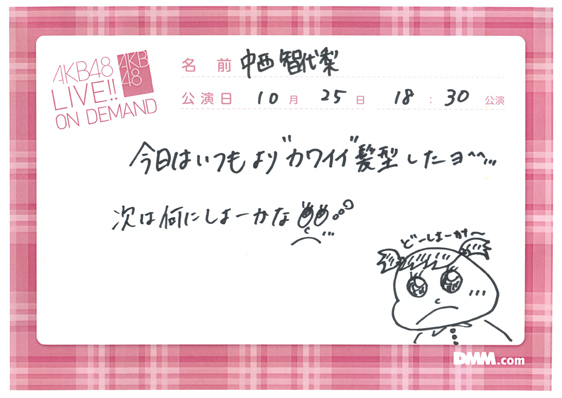 AKB48
LIVE!!
ON DEMAND
AKB
48
名前 中西智代梨
公演日 10月 25日 18:30 公演
今日はいつもより"カワイイ"髪型したヨ^^,,,
次は何にしよーかな
どーしよーかナ〜
DMM.com